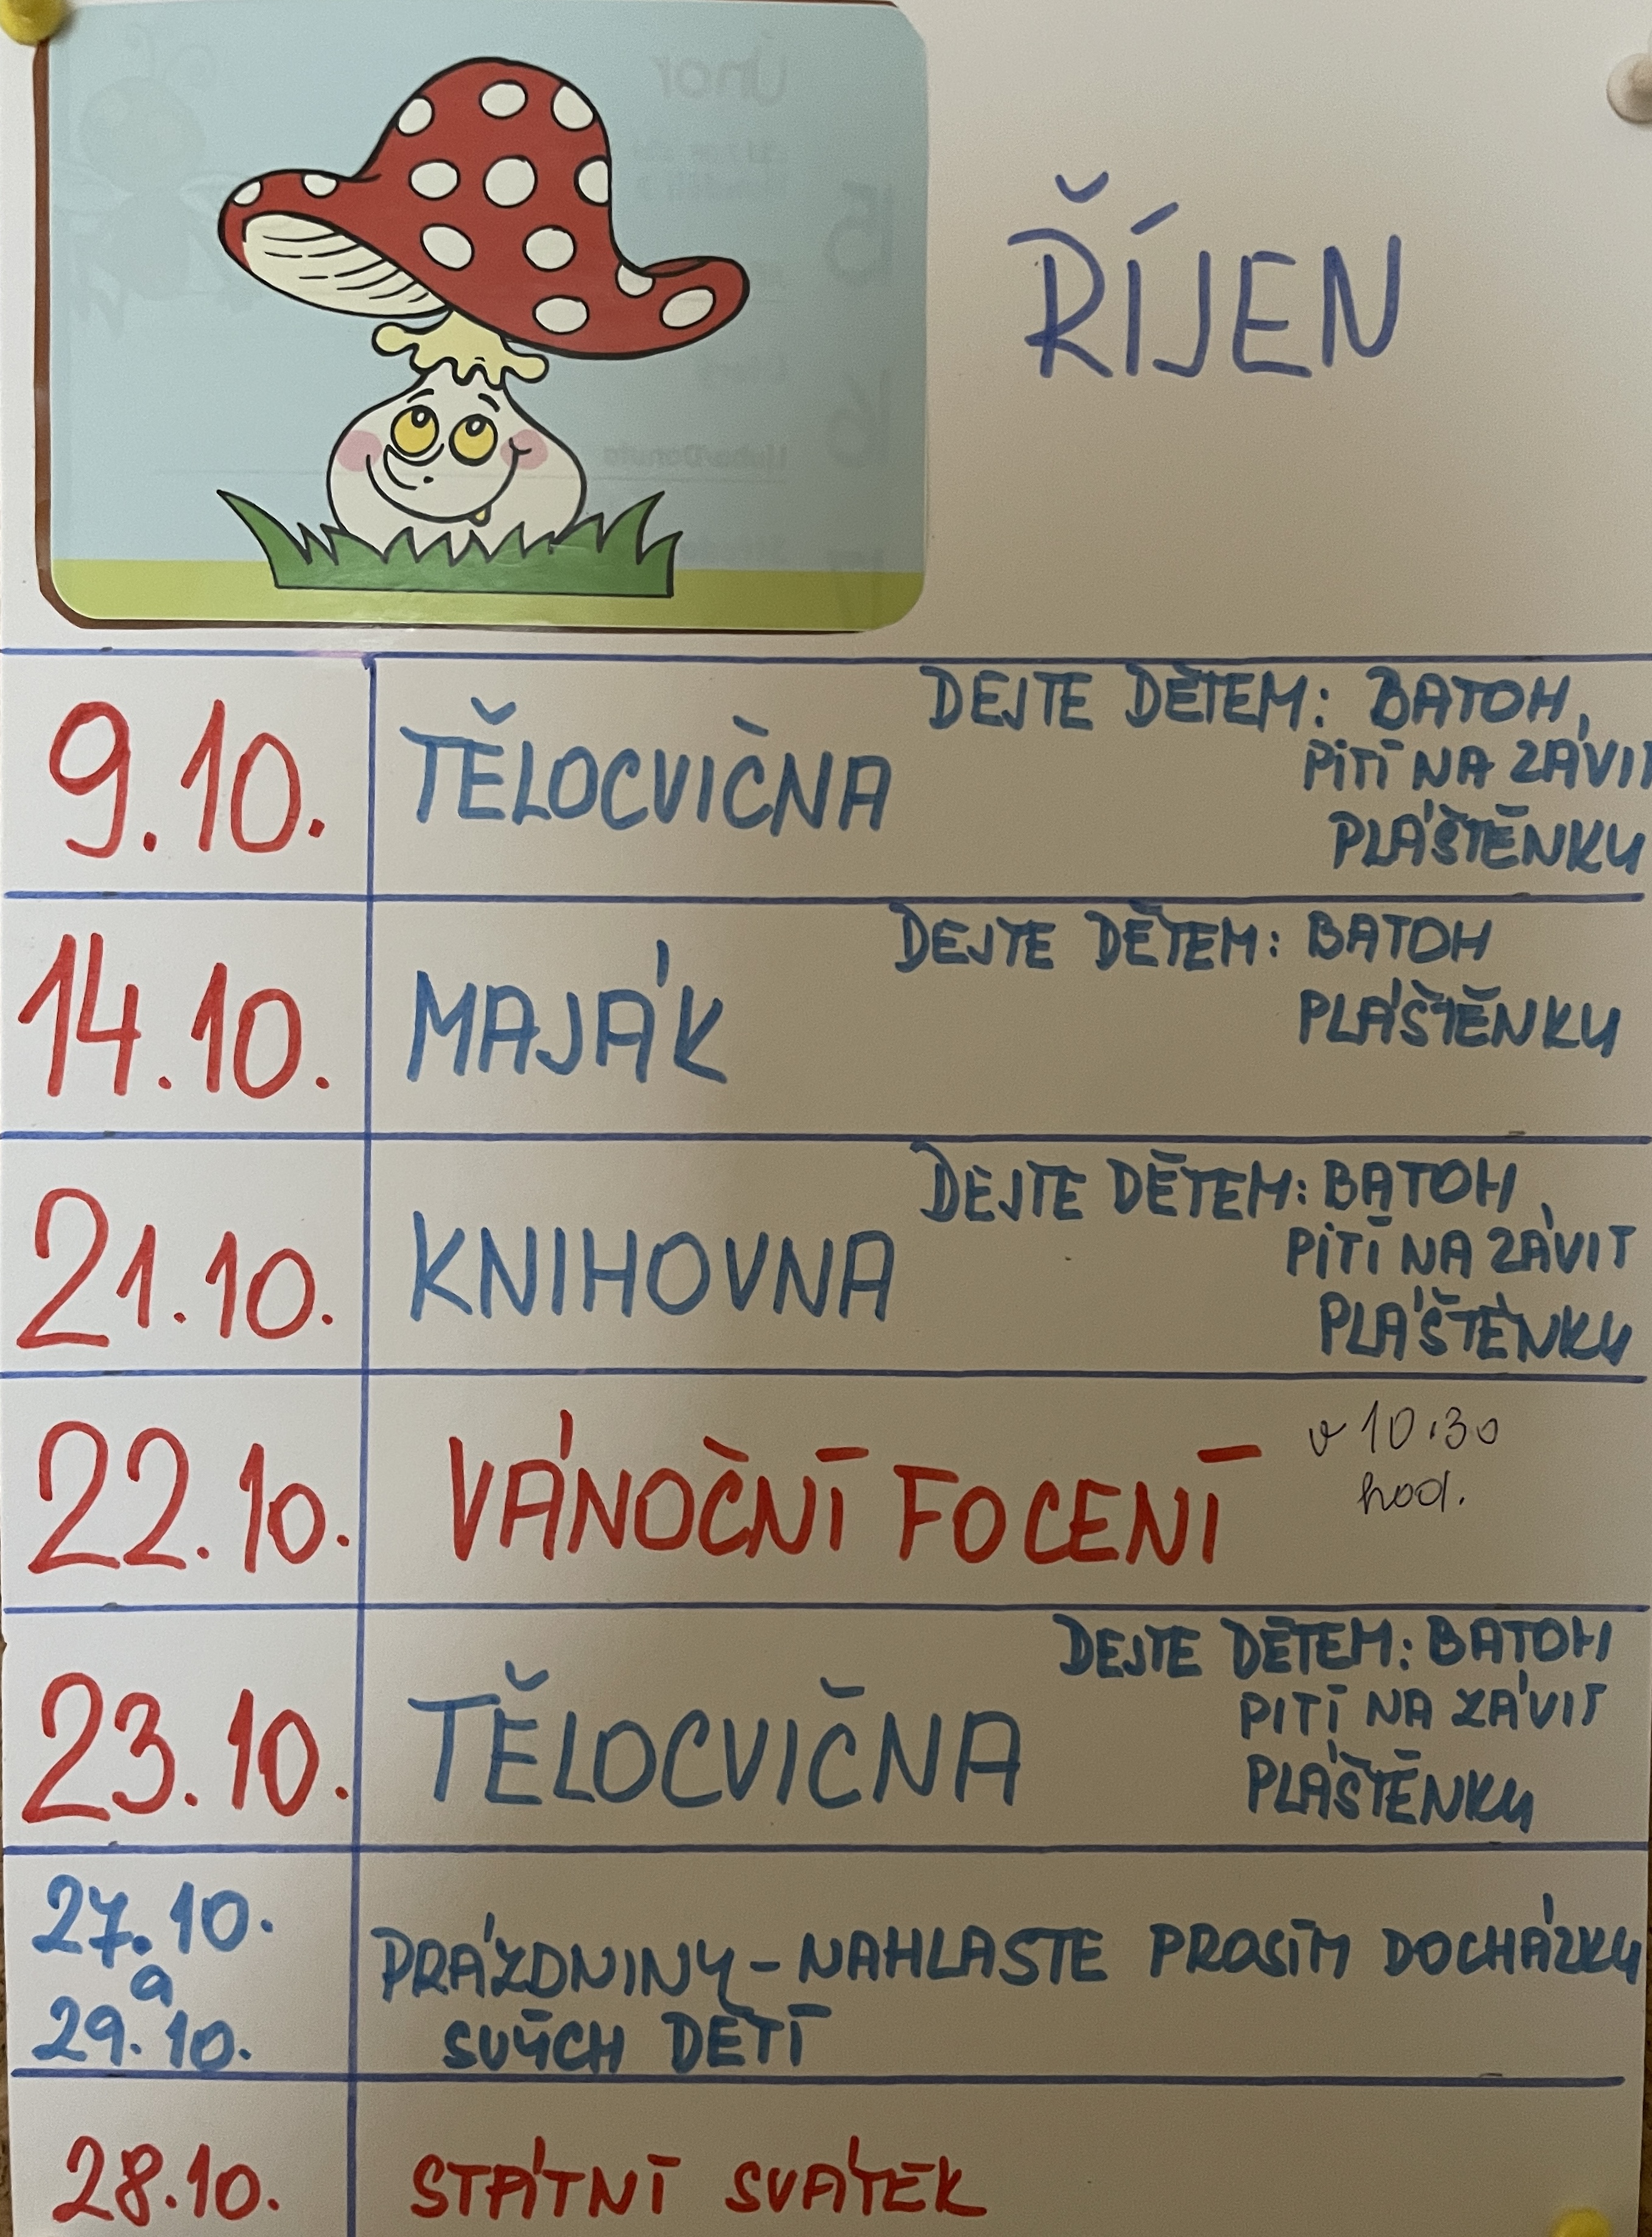 ŘÍJEN
9.10.
TĚLOCVIČNA
DEJTE DĚTEM: BATOH,
PITÍ NA ZÁVIT
PLÁŠTĚNKU
14.10.
MAJÁK
DEJTE DĚTEM: BATOH
PLÁŠTĚNKU
21.10.
KNIHOVNA
DEJTE DĚTEM: BATOH,
PITÍ NA ZÁVIT
PLÁŠTĚNKU
22.10.
VÁNOČNÍ FOCENÍ
v 10.30
hod.
23.10.
TĚLOCVIČNA
DEJTE DĚTEM: BATOH
PITÍ NA ZÁVIT
PLÁŠTĚNKU
27.10.
a
29.10.
PRÁZDNINY - NAHLASTE PROSÍM DOCHÁZKU
SVÝCH DĚTÍ
28.10.
STÁTNÍ SVÁTEK
Únor
15
16
Ljuba/Danuta